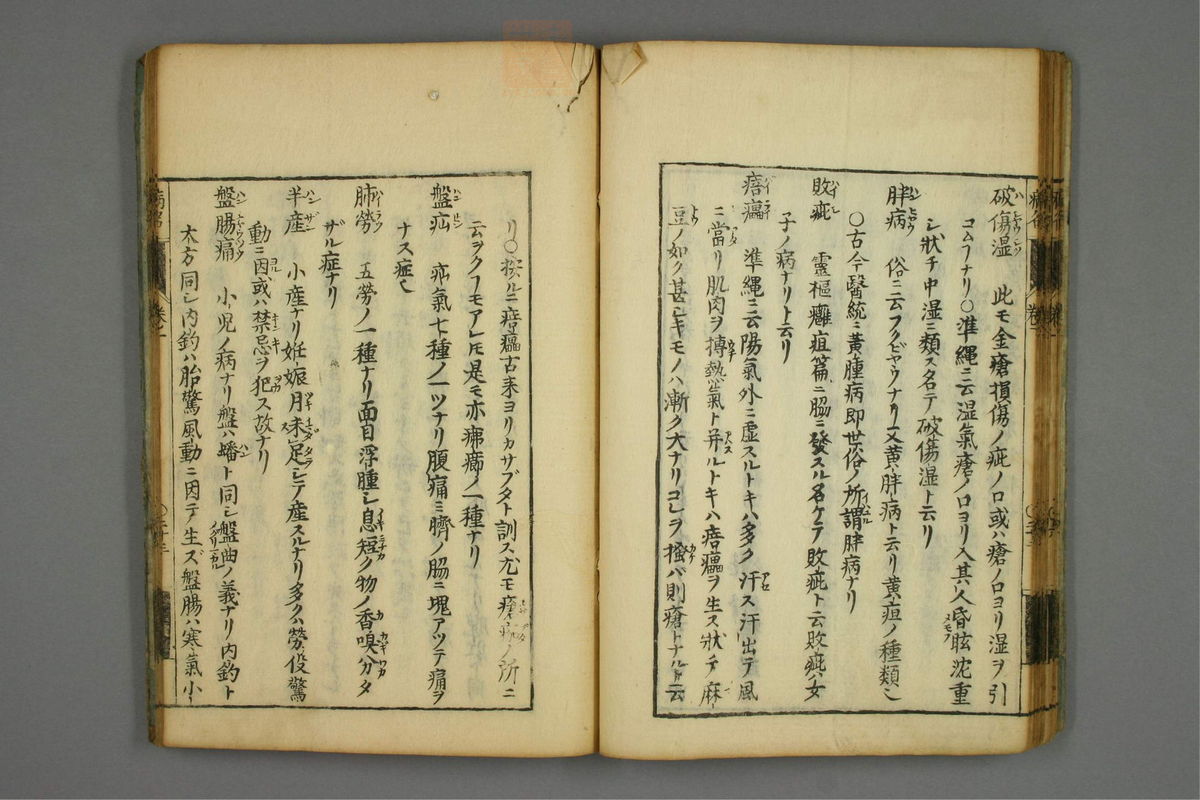 破傷湿 此モ金瘡損傷ノ疵ノ口或ハ瘡ノ口ヨリ湿ヲ引
コムフナリ○準縄ニ云湿氣瘡ノ口ヨリ入其人昏眩沈重
シ狀チ中湿ニ類ス名テ破傷湿ト云リ
胖病 俗ニ云フクビヤウナリ又黄胖病ト云リ黄疸ノ種類也
○古今醫統ニ黄腫病即世俗ノ所謂胖病ナリ
敗疵 靈樞癰疽篇ニ脇ニ發スル名ケテ敗疵ト云敗疵ハ女
子ノ病ナリト云リ
㾦㿔 準縄ニ云陽氣外ニ虚スルトキハ多ク汗ス汗出テ風
ニ當リ肌肉ヲ搏熱氣ト并ルトキハ㾦㿔ヲ生ス狀チ麻
豆ノ如ク甚シキモノハ漸ク大ナリコレヲ搔バ則瘡トナルト云
リ○按ルニ㾦㿔古来ヨリカサブタト訓ス尤モ瘡ノ所ニ
云ヲクフモアレ圧是モ亦痱癤ノ一種ナリ
盤疝 疝氣七種ノ一ツナリ腹痛ミ臍ノ脇ニ塊アツテ痛ヲ
ナス症也
肺勞 五勞ノ一種ナリ面目浮腫シ息短ク物ノ香嗅分タ
ザル症ナリ
半産 小産ナリ妊娠月未足シテ産スルナリ多クハ勞役驚
動ニ因或ハ禁忌ヲ犯ス故ナリ
盤腸痛 小児ノ病ナリ盤ハ蟠ト同シ盤曲ノ義ナリ内釣ト
大方同シ内釣ハ胎驚風動ニ因テ生ズ盤腸ハ寒氣小